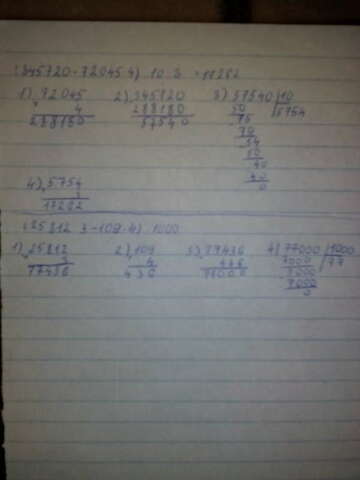 (345720-72045·4) 10·3 =17262
1) 72045 2) 345720 3) 57540 | 10
4 288180 50 5754
288180 57540 75
70
54
50
40
40
0
4) 5754
3
17262
(25812·3-109·4) 1000
1) 25812 2) 109 3) 77436 4) 77000 | 1000
3 4 436 7000 77
77436 436 77000 7000
7000
0